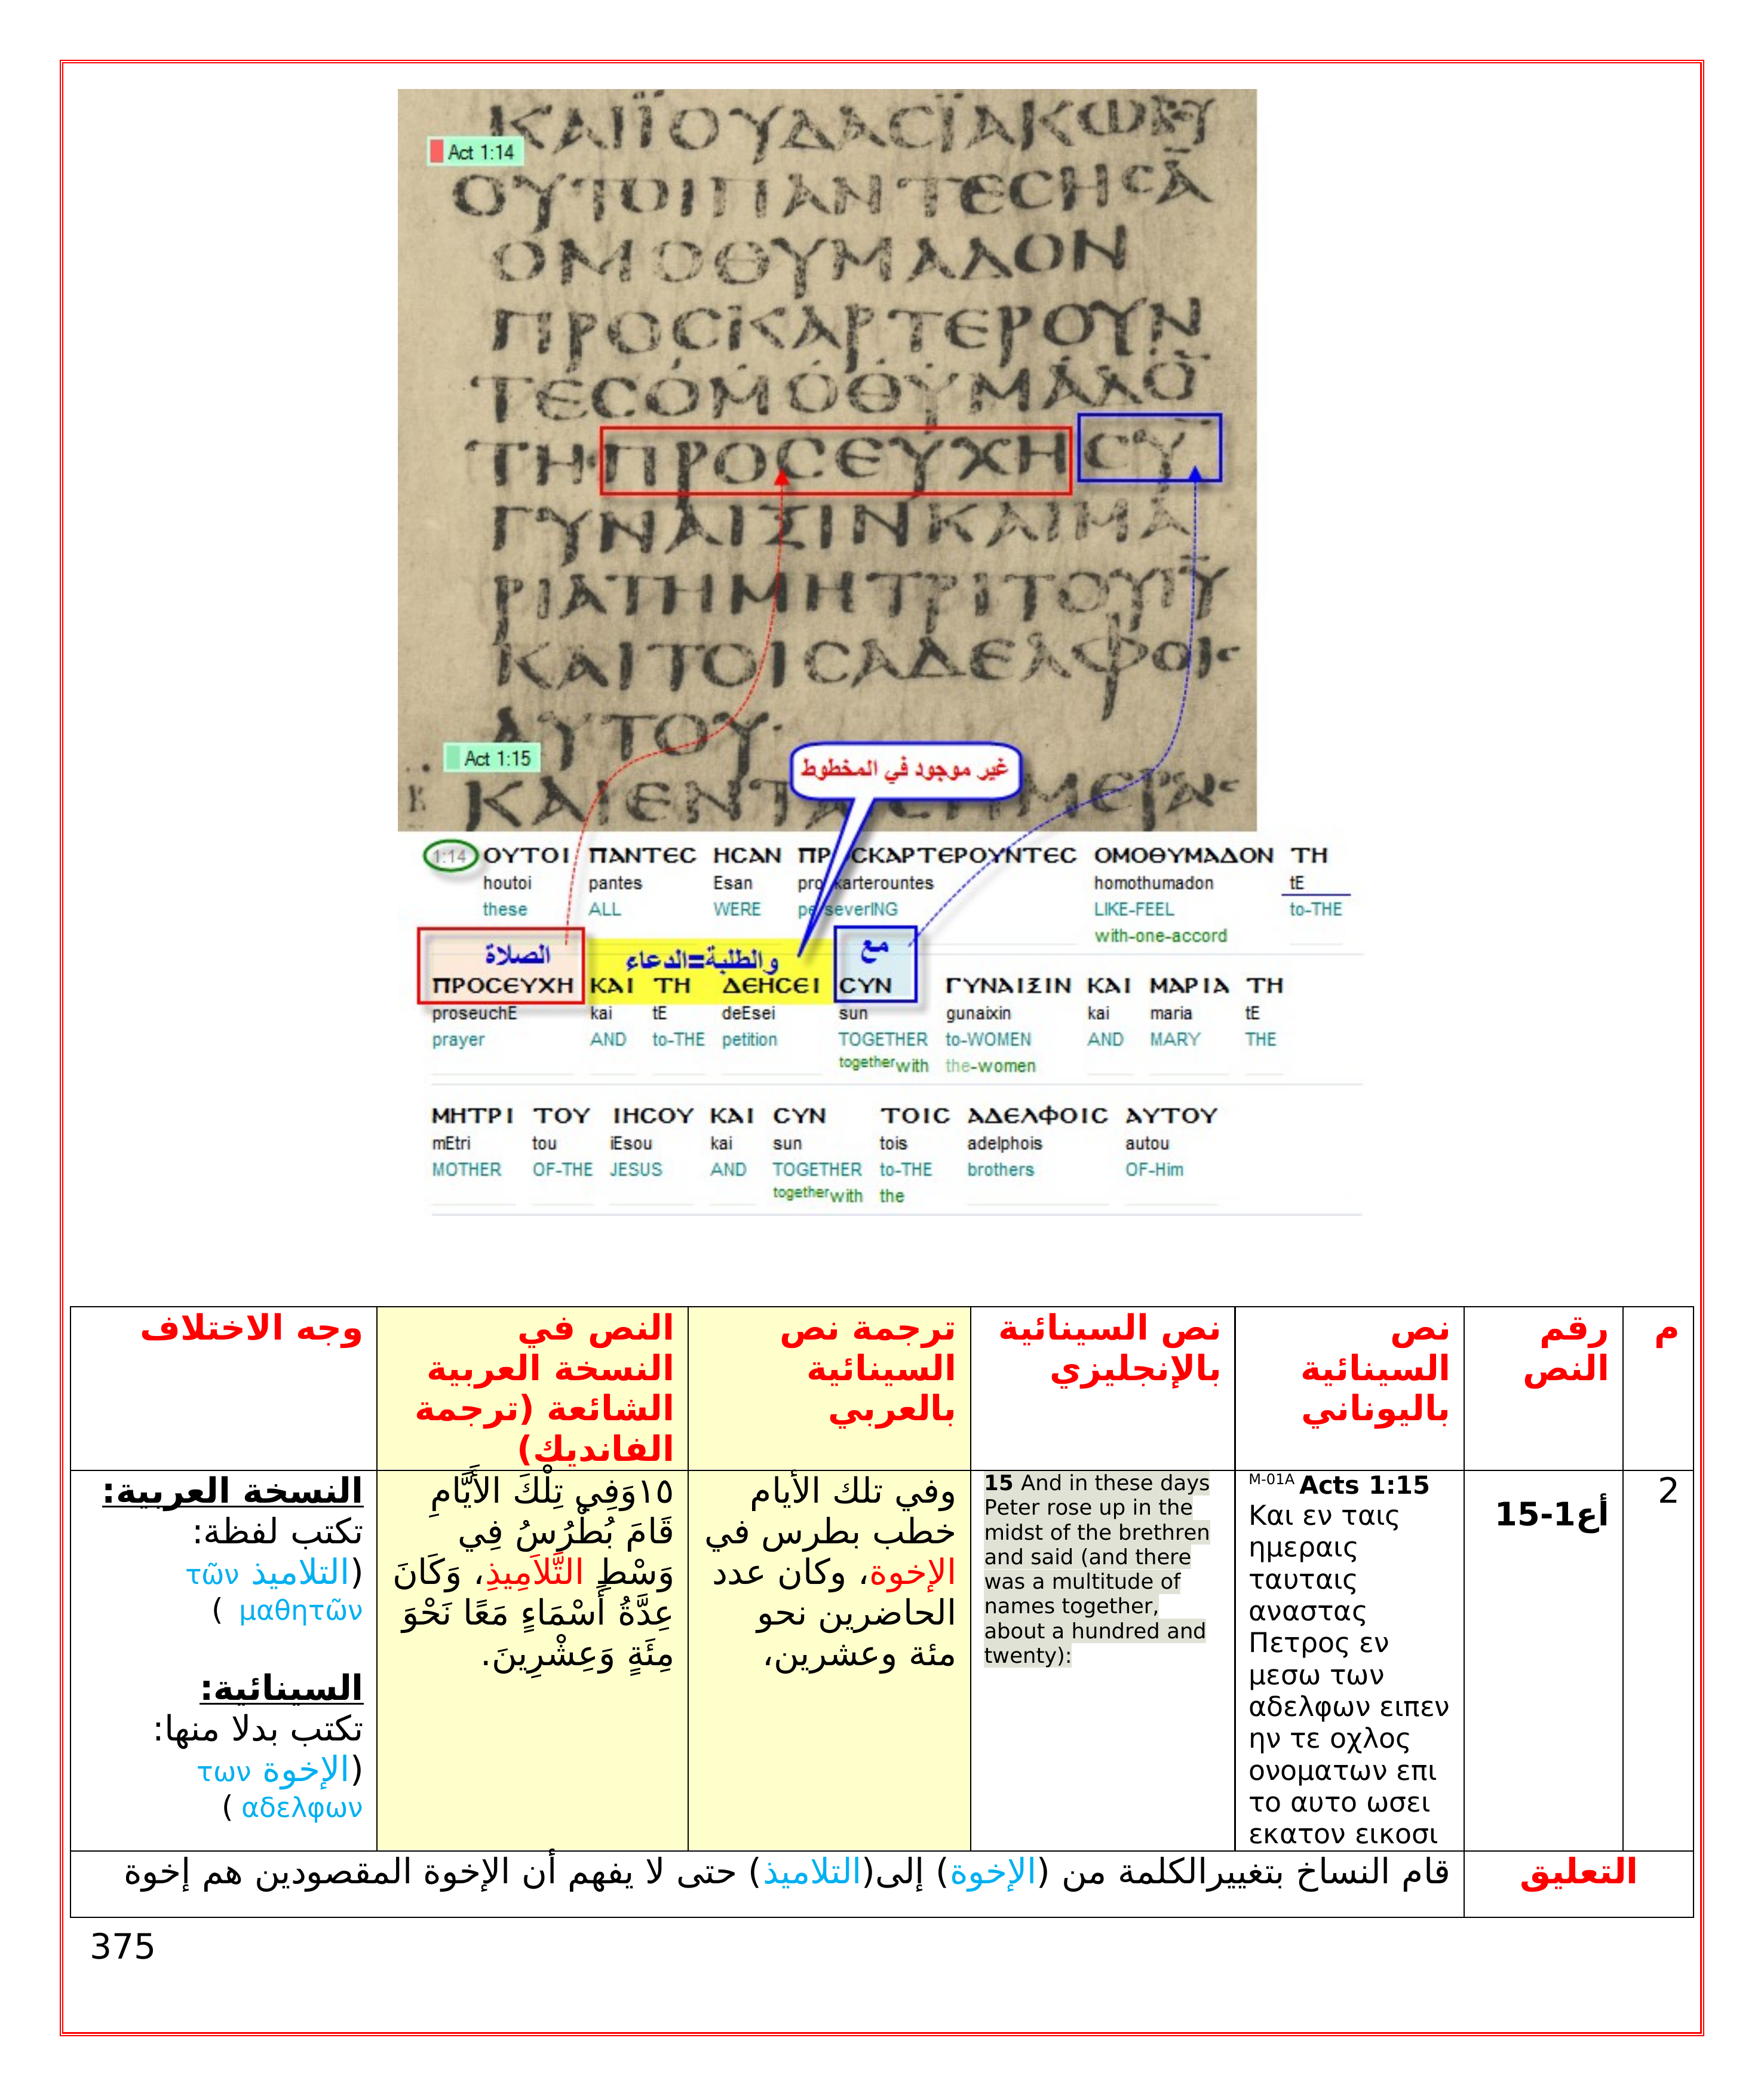 Act 1:14
ΚΑΙΪΟΥΔΑСΪΑΚΩΒΟΥ
ΟΥΤΟΙΠΑΝΤΕСΗСΑ̅
ΟΜΟΘΥΜΑΔΟΝ
ΠΡΟСΚΑΡΤΕΡΟΥΝ
ΤΕСΟΜΟΘΥΜΑΔΟ̅
ΤΗΠΡΟСΕΥΧΗСΥ̅
ΓΥΝΑΙΞΙΝΚΑΙΜΑ
ΡΙΑΤΗΜΗΤΡΙΤΟΥΙ̅Υ̅
ΚΑΙΤΟΙСΑΔΕΛΦΟΙС
ΑΥΤΟΥ·
Act 1:15
غير موجود في المخطوط
1:14 ΟΥΤΟΙ ΠΑΝΤΕС ΗСΑΝ ΠΡΟСΚΑΡΤΕΡΟΥΝΤΕС ΟΜΟΘΥΜΑΔΟΝ ΤΗ
houtoi pantes Esan proskarterountes homothumadon tE
these ALL WERE perseverING LIKE-FEEL to-THE
with-one-accord
الصلاة والطلبة=الدعاء مع
ΠΡΟСΕΥΧΗ ΚΑΙ ΤΗ ΔΕΗСΕΙ СΥΝ ΓΥΝΑΙΞΙΝ ΚΑΙ ΜΑΡΙΑ ΤΗ
proseuchE kai tE deEsei sun gunaixin kai maria tE
prayer AND to-THE petition TOGETHER to-WOMEN AND MARY THE
togetherwith the-women
ΜΗΤΡΙ ΤΟΥ ΙΗСΟΥ ΚΑΙ СΥΝ ΤΟΙС ΑΔΕΛΦΟΙС ΑΥΤΟΥ
mEtri tou iEsou kai sun tois adelphois autou
MOTHER OF-THE JESUS AND TOGETHER to-THE brothers OF-Him
togetherwith the
م
رقم
النص
نص
السينائية
باليوناني
نص السينائية
بالإنجليزي
ترجمة نص
السينائية
بالعربي
النص في
النسخة العربية
الشائعة (ترجمة
الفانديك)
وجه الاختلاف
2
أع1-15
M-01A Acts 1:15
Και εν ταις
ημεραις
ταυταις
αναστας
Πετρος εν
μεσω των
αδελφων ειπεν
ην τε οχλος
ονοματων επι
το αυτο ωσει
εκατον εικοσι
15 And in these days
Peter rose up in the
midst of the brethren
and said (and there
was a multitude of
names together,
about a hundred and
twenty):
وفي تلك الأيام
خطب بطرس في
الإخوة، وكان عدد
الحاضرين نحو
مئة وعشرين،
١٥وَفِي تِلْكَ الأَيَّامِ
قَامَ بُطْرُسُ فِي
وَسْطِ التَّلاَمِيذِ، وَكَانَ
عِدَّةُ أَسْمَاءٍ مَعًا نَحْوَ
مِئَةٍ وَعِشْرِينَ.
النسخة العربية:
تكتب لفظة:
(التلاميذ τῶν
μαθητῶν )
السينائية:
تكتب بدلا منها:
(الإخوة των
αδελφων )
التعليق
قام النساخ بتغييرالكلمة من (الإخوة) إلى(التلاميذ) حتى لا يفهم أن الإخوة المقصودين هم إخوة
375